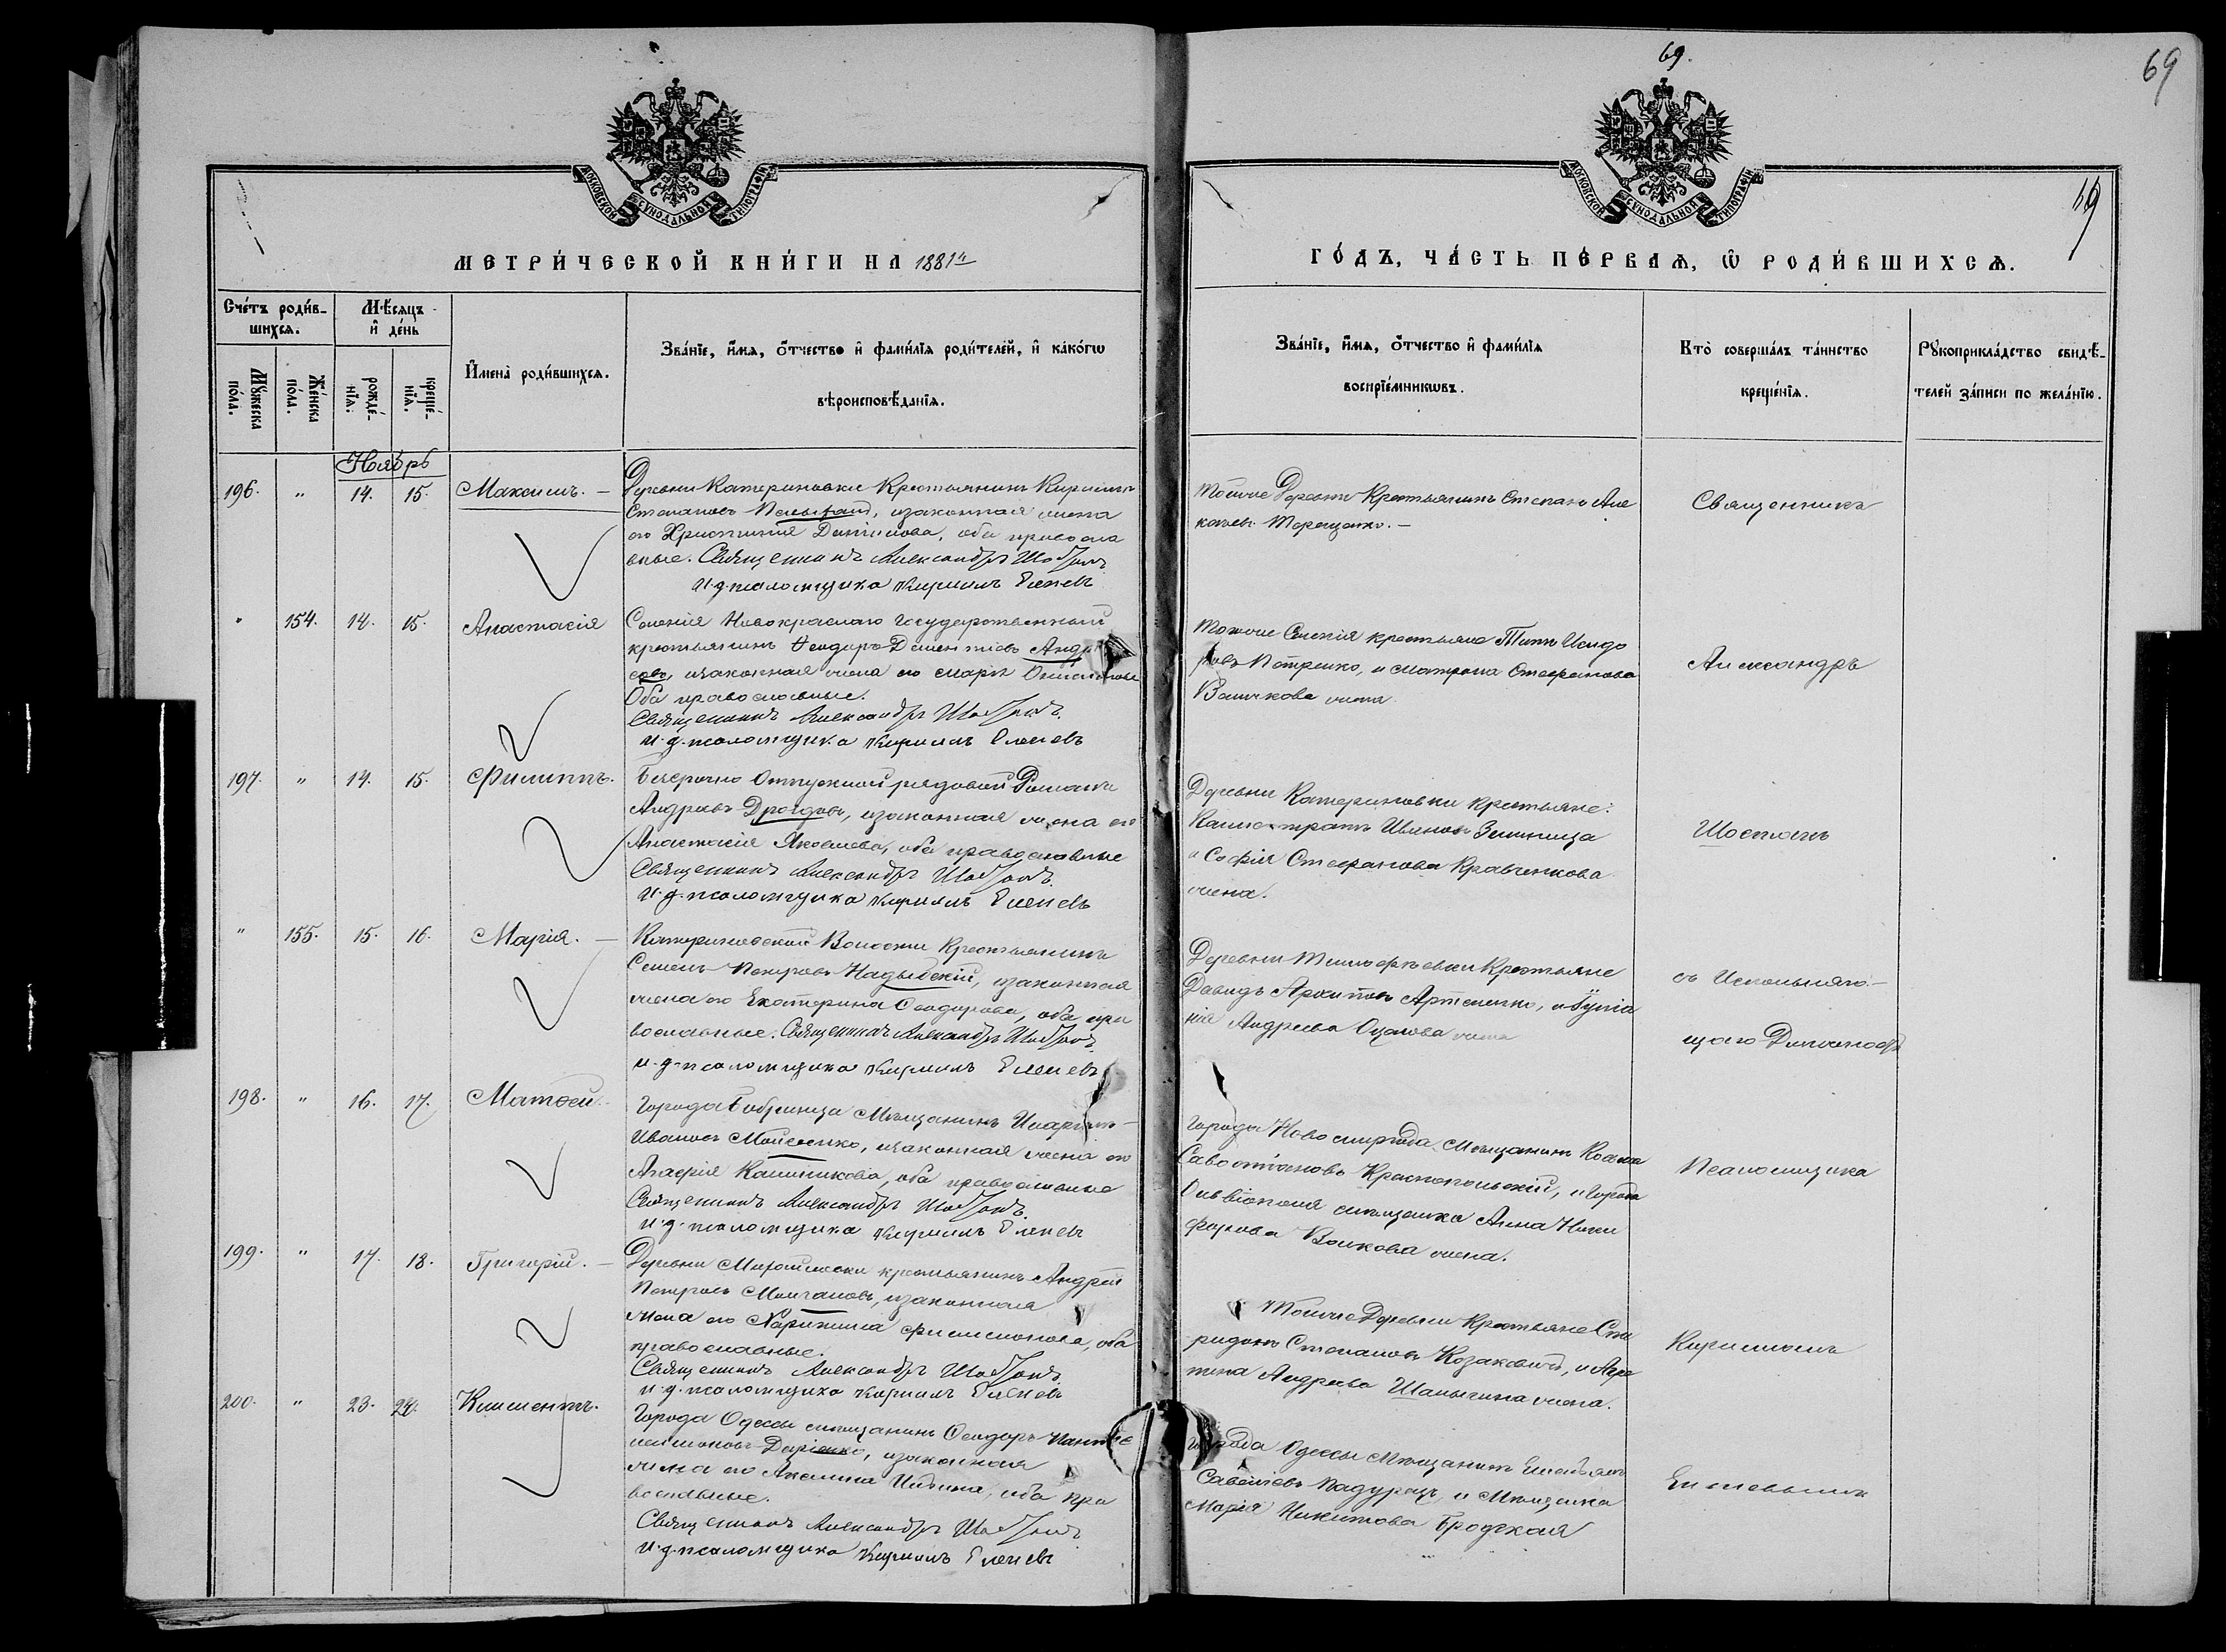 69.
69
69
МОСКОВСКОЙ СѴНОДАЛЬНОЙ ТИПОГРАФІИ
МОСКОВСКОЙ СѴНОДАЛЬНОЙ ТИПОГРАФІИ
МЕТРИ́ЧЕСКОЙ КНИ́ГИ НА 1881й
ГО́ДЪ, ЧА́СТЬ ПЕ́РВАѦ, Ѡ҆ РОДИ́ВШИХСѦ.
Сче́тъ роди́вшихсѧ.
Мѣ́сѧцъ и҆ де́нь
Мꙋ́жеска по́ла.
Же́нска по́ла.
рожде́нїѧ.
креще́нїѧ.
И҆мена̀ роди́вшихсѧ.
Зва́нїе, и҆́мѧ, ѻ҆́тчество и҆ фами́лїѧ роди́телей, и҆ како́гѡ
вѣроисповѣ́данїѧ.
Зва́нїе, и҆́мѧ, ѻ҆́тчество и҆ фами́лїѧ
воспрїе́мникѡвъ.
Кто̀ соверша́лъ та́инство
креще́нїѧ.
Рꙋкоприкла́дство свидѣ́телей за́писи по жела́нїю.
Ноябрь
196. " 14. 15. Максимъ. —
Деревни Катериновки Крестьянинъ Кириллъ
Степановъ, изаконная жена
его Христинія, оба правосла
вные. Священникъ Александръ Шостакъ
и.д. псаломщика Кириллъ Еленевъ
тойже Деревни Крестьянинъ Степанъ
Терещенко. —
Священникъ
" 154. 14. 15. Анастасія
Селенія Новокраснаго Государственный
крестьянинъ Ѳеодоръ Дементіевъ
изаконная жена его Марѳа
Оба православные.
Священникъ Александръ Шостакъ.
и.д. псаломщика Кириллъ Еленевъ
тогоже Селенія крестьяне Титъ Исидо
ровъ Петренко, и Матрона Стефанова
Волчкова жена
Александръ
197. " 14. 15. Филиппъ.
Безсрочно Отпускной рядовой Романъ
Андреевъ Дроздовъ, изаконная жена его
Анастасія Яковлева, оба православные
Священникъ Александръ Шостакъ.
и.д. псаломщика Кириллъ Еленевъ
Деревни Катериновки крестьяне:
Калистратъ Ивановъ
и Софія Стефанова Кравченкова
жена.
Шостакъ
" 155. 15. 16. Марія. —
Катериновской Волости Крестьянинъ
Семенъ Петровъ Надыбскій, изаконная
жена его Екатерина Ѳеодорова, оба пра
вославные. Священникъ Александръ Шостакъ.
и.д. псаломщика Кириллъ Еленевъ
Деревни Тимофѣевки Крестьяне
Давидъ Архиповъ Артеменко,
Андреева жена
съ Исполняю-
щаго Должность
198. " 16. 17. Матѳей.
Города Бобринца Мѣщанинъ
Ивановъ Моисеенко, изаконная жена его
Агафія Калинникова, оба православные
Священникъ Александръ Шостакъ.
и.д. псаломщика Кириллъ Еленевъ
Города Новомиргода Мѣщанинъ Косма
Савостіановъ Краснопольскій, и Города
Ольвіополя мѣщанка Анна Ники
форова Волкова жена.
Псаломщика
199. " 17. 18. Григорій. —
Деревни крестьянинъ Андрей
Петровъ Молчановъ, изаконная
жена его Харитина Филимонова, оба
православные.
Священникъ Александръ Шостакъ.
и.д. псаломщика Кириллъ Еленевъ
Тойже Деревни Крестьяне Спи
ридонъ Степановъ Козаковъ, и Агри
пина Андреева Шалыгина жена.
Кирилломъ
200. " 23. 24. Климентъ.
Города Одессы мѣщанинъ Ѳеодоръ Панте
леимоновъ, изаконная
жена его Акилина Ильина, оба пра
вославные.
Священникъ Александръ Шостакъ
и.д. псаломщика Кириллъ Еленевъ
Города Одессы Мѣщанинъ Емельянъ
Савеліевъ Падурецъ, и Мѣщанка
Марія Никитова Бродская
Еленевымъ